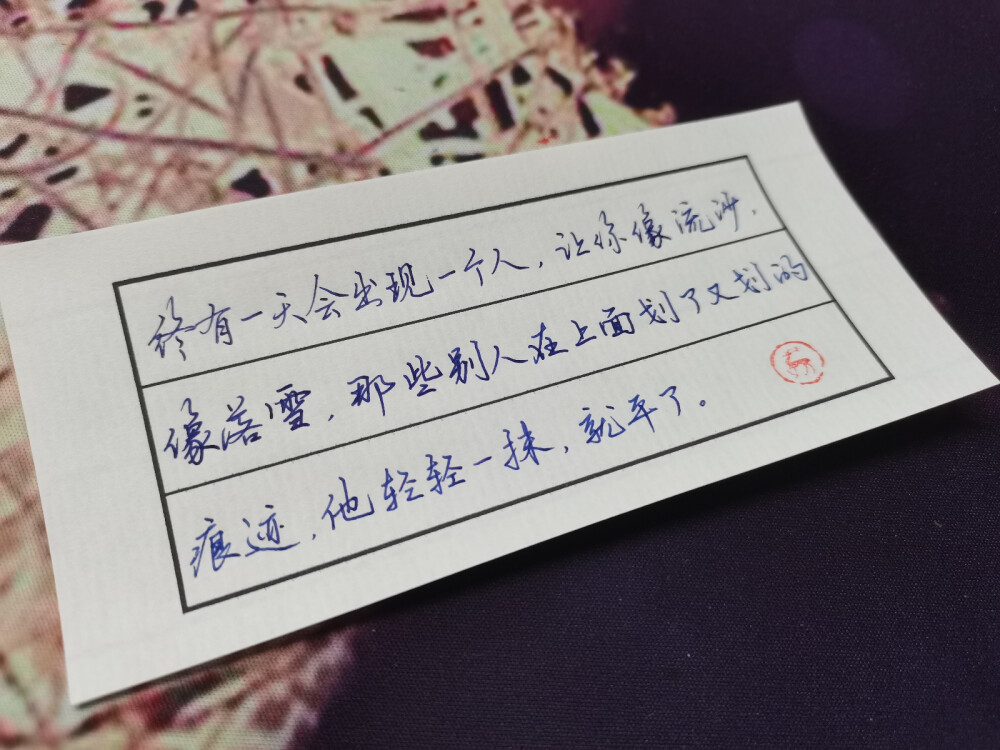 终有一天会出现一个人，让你像流沙，
像落雪，那些别人在上面划了又划的
痕迹，他轻轻一抹，就平了。